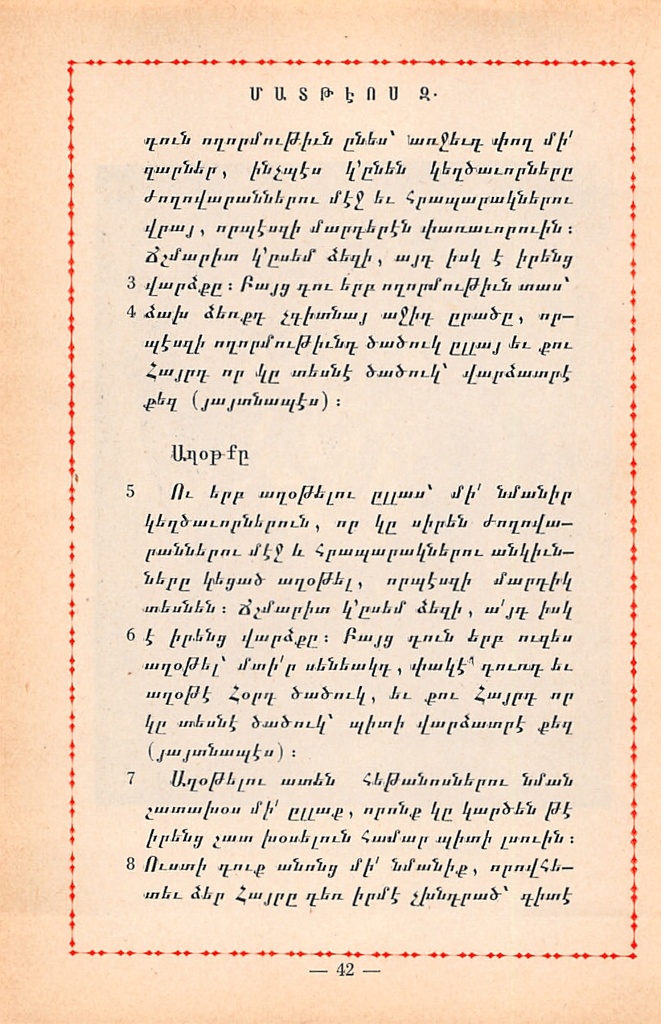 ՄԱՏԹԷՈՍ Զ․
դուն ողորմութիւն ընես՝ առջեւդ փող մի՛
զարներ, ինչպէս կ՚ընեն կեղծաւորները
ժողովարաններու մէջ եւ հրապարակներու
վրայ, որպէսզի մարդերէն փառաւորուին։
Ճշմարիտ կ՚ըսեմ ձեզի, այդ իսկ է իրենց
3 վարձքը։ Բայց դու երբ ողորմութիւն տաս՝
4 ձախ ձեռքդ չգիտնայ աջիդ ըրածը, որ—
պէսզի ողորմութիւնդ ծածուկ ըլլայ եւ քու
Հայրդ որ կը տեսնէ ծածուկ՝ վարձատրէ
քեզ (յայտնապէս)։
Աղօթքը
5 Ու երբ աղօթելու ըլլաս՝ մի՛ նմանիր
կեղծաւորներուն, որ կը սիրեն ժողովա—
րաններու մէջ և հրապարակներու անկիւն—
ները կեցած աղօթել, որպէսզի մարդիկ
տեսնեն։ Ճշմարիտ կ՚ըսեմ ձեզի, ա՛յդ իսկ
6 է իրենց վարձքը։ Բայց դուն երբ ուզես
աղօթել՝ մտի՛ր սենեակդ, փակէ՛ դուռդ եւ
աղօթէ Հօրդ ծածուկ, եւ քու Հայրդ որ
կը տեսնէ ծածուկ՝ պիտի վարձատրէ քեզ
(յայտնապէս)։
7 Աղօթելու ատեն հեթանոսներու նման
շատախօս մի՛ ըլլաք, որոնք կը կարծեն թէ
իրենց շատ խօսելուն համար պիտի լսուին։
8 Ուստի դուք անոնց մի՛ նմանիք, որովհե—
տեւ ձեր Հայրը դեռ իրմէ չխնդրած՝ գիտէ
— 42 —